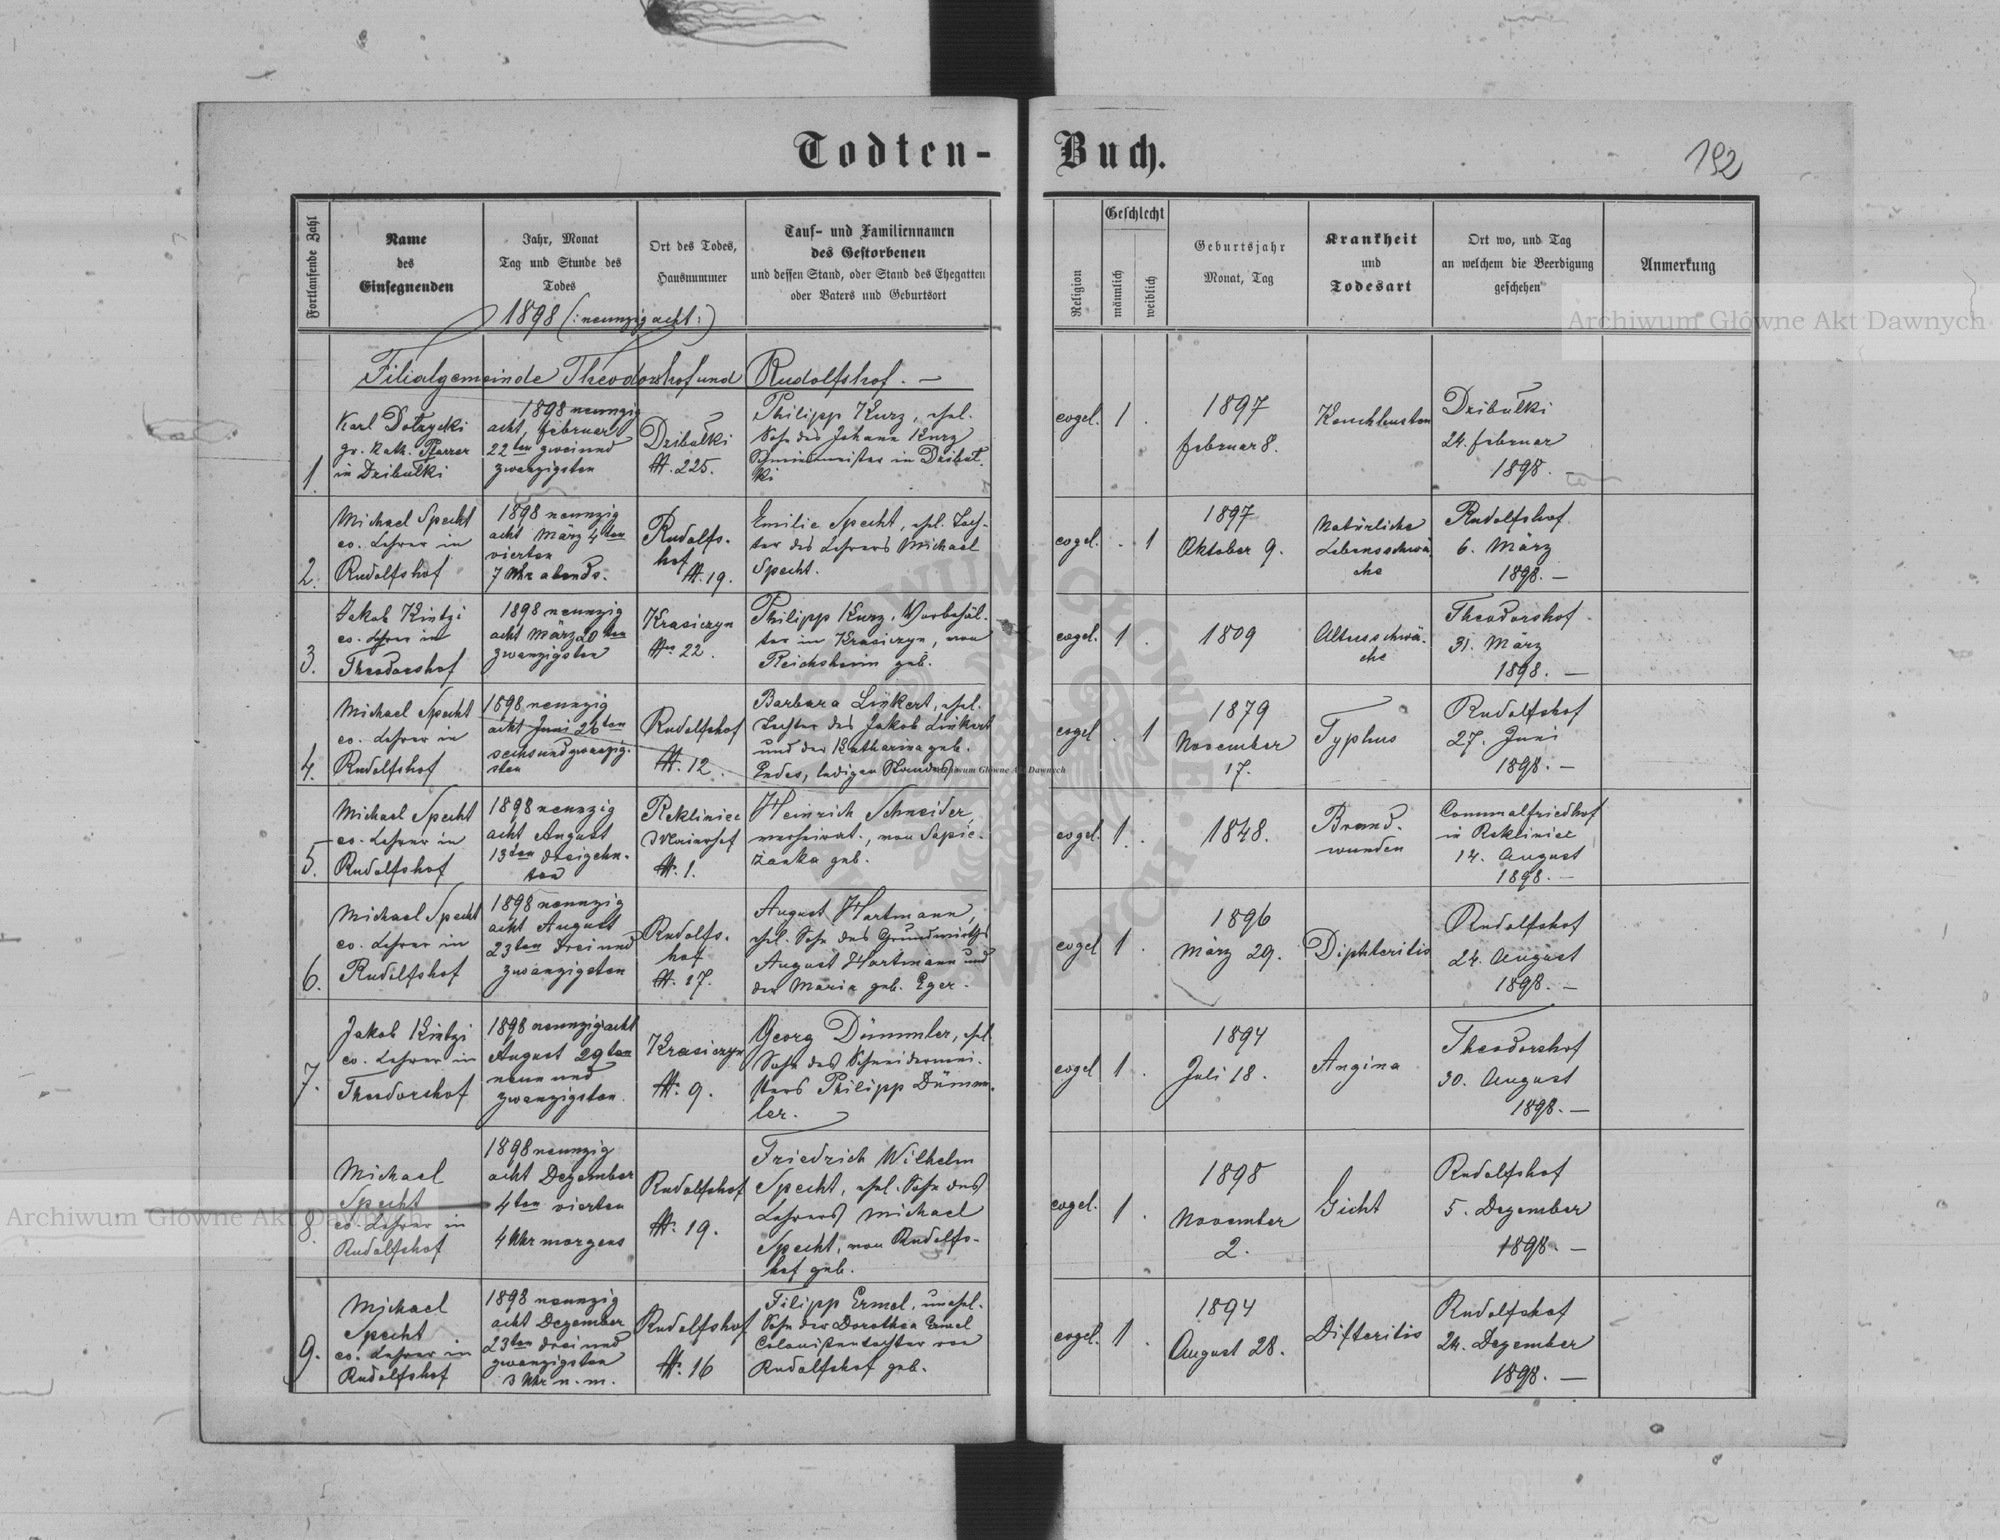 Todten-Buch.
192
Fortlaufende Zahl
Name
des
Einsegnenden
Jahr, Monat
Tag und Stunde des
Todes
Ort des Todes,
Hausnummer
Tauf- und Familiennamen
des Gestorbenen
und dessen Stand, oder Stand des Ehegatten
oder Vaters und Geburtsort
Religion
Geschlecht
männlich
weiblich
Geburtsjahr
Monat, Tag
Krankheit
und
Todesart
Ort wo, und Tag
an welchem die Beerdigung
geschehen
Anmerkung
1898 (:neunzig acht:)
Filialgemeinde Theodorshof und Rudolfshof. —
1.
Karl Dołzycki
gr. kath. Pfarrer
in Dzibułki
1898 neunzig
acht, Februar
22ten zweiund
zwanzigsten
Dzibułki
N. 225.
Philipp Kurz, ehel.
Sohn des Johann Kurz
Schmiedmeister in Dzibuł-
ki
evgel.
1
.
1897
Februar 8.
Keuchhusten
Dzibułki
24. Februar
1898. —
2.
Michael Specht
ev. Lehrer in
Rudolfshof
1898 neunzig
acht März 4ten
vierten
7 Uhr abends.
Rudolfs-
hof
N. 19.
Emilie Specht, ehel. Toch-
ter des Lehrers Michael
Specht.
evgel.
.
1
1897
Oktober 9.
Natürliche
Lebensschwä-
che
Rudolfshof
6. März
1898. —
3.
Jakob Kintzi
ev. Lehrer in
Theodorshof
1898 neunzig
acht März 20ten
zwanzigsten
Krasiczyn
N. 22.
Philipp Kurz, Vorbehäl-
ter in Krasiczyn, von
Reichsheim geb.
evgel.
1
.
1809
Altersschwä-
che
Theodorshof
31. März
1898. —
4.
Michael Specht
ev. Lehrer in
Rudolfshof
1898 neunzig
acht Juni 26ten
sechsundzwanzig-
sten
Rudolfshof
N. 12.
Barbara Linkert, ehel.
Tochter des Jakob Linkert
und der Katharina geb.
ledigen Standes
evgel
.
1
1879
November
17.
Typhus
Rudolfshof
27. Juni
1898. —
5.
Michael Specht
ev. Lehrer in
Rudolfshof
1898 neunzig
acht August
13ten dreizehn-
ten
Rekliniec
Maierhof
N. 1.
Heinrich Schneider,
verheirat., von Sapie-
żanka geb.
evgel.
1
.
1848.
Brand-
wunden
Commalfriedhof
in Rekliniec
14. August
1898. —
6.
Michael Specht
ev. Lehrer in
Rudolfshof
1898 neunzig
acht August
23ten dreiund
zwanzigsten
Rudolfs-
hof
N. 17.
August Hartmann,
ehel. Sohn des Grundwirths
August Hartmann und
der Maria geb. Eger.
evgel
1
.
1896
März 29.
Diphteritis
Rudolfshof
24. August
1898. —
7.
Jakob Kintzi
ev. Lehrer in
Theodorshof
1898 neunzigacht
August 29ten
neun und
zwanzigsten.
Krasiczyn
N. 9.
Georg Dümmler, ehel
Sohn des Schneidermei-
sters Philipp Dümm-
ler.
evgel
1
.
1894
Juli 18.
Angina
Theodorshof
30. August
1898. —
8.
Michael
Specht
ev. Lehrer in
Rudolfshof
1898 neunzig
acht Dezember
4ten vierten
4 Uhr morgens
Rudolfshof
N. 19.
Friedrich Wilhelm
Specht, ehel. Sohn des
Lehrers Michael
Specht, von Rudolfs-
hof geb.
evgel.
1
.
1898
November
2.
Gicht
Rudolfshof
5. Dezember
1898. —
9.
Michael
Specht
ev. Lehrer in
Rudolfshof
1898 neunzig
acht Dezember
23ten dreiund
zwanzigsten
3 Uhr n. m.
Rudolfshof
N. 16
Filipp Ermel, unehel.
Sohn der Dorothea Ermel
Colonistentochter von
Rudolfshof geb.
evgel.
1
.
1894
August 28.
Difteritis
Rudolfshof
24. Dezember
1898. —
Archiwum Główne Akt Dawnych
Archiwum Główne Akt Dawnych
Archiwum Główne Akt Dawnych
ARCHIWUM GŁÓWNE AKT DAWNYCH